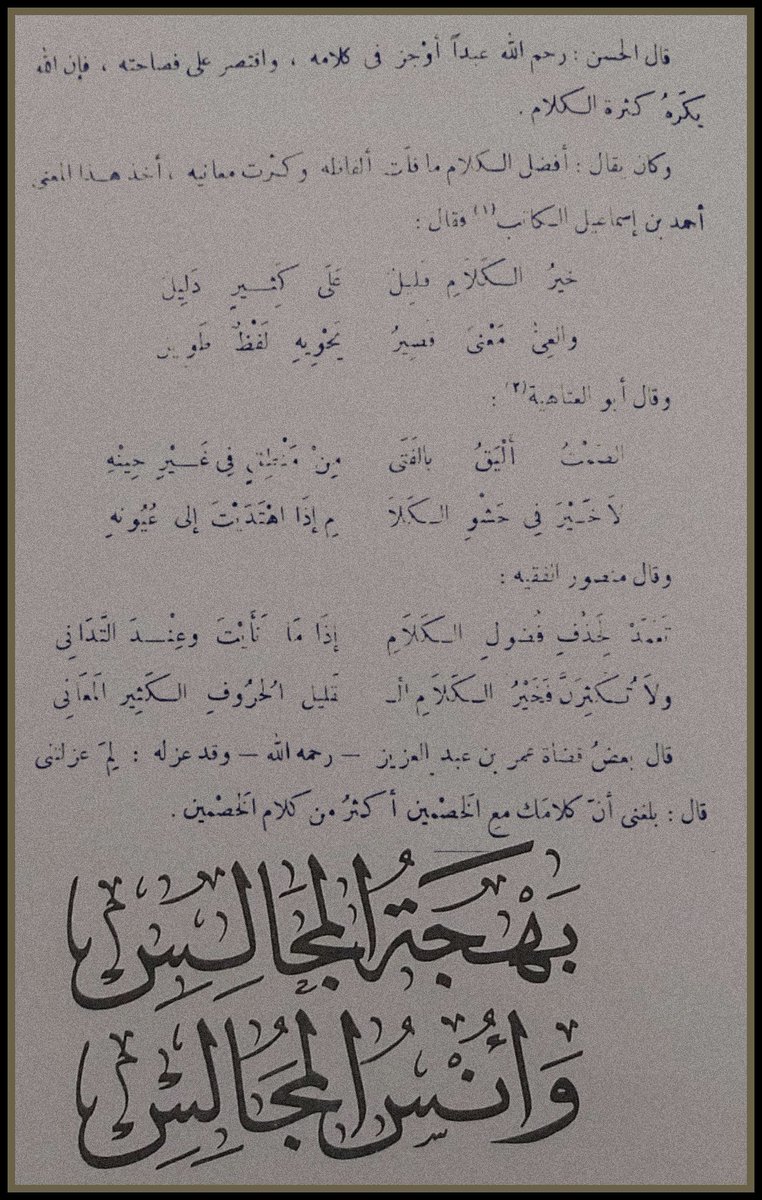 قال الحسن : رحم الله عبداً أوْجز فى كلامه ، واقتصر على فصاحته ، فإن الله
يكَرهُ كثرة الكلام .
وكان يقال : أفضل الكلام ما قلّت ألفاظه وكثرت معانيه ، أخذ هذا المعنى
أحمد بن إسماعيل الكاتب (١) فقال :
خيرُ الكَلَامِ قليلٌ عَلَى كَثِيرٍ دَلِيلُ
والعِىُّ مَعْنىً قصِيرُ يَحْوِيهِ لَفْظٌ طَوِيلُ
وقال أبو العتاهية (٢) :
الصّمْتُ أَلْيَقُ بالفَتَى مِنْ مَنْطِقٍ فِى غَيْرِ حِينِهِ
لَا خَيْرَ فِى حَشْوِ الكَلَا مِ إذَا اهْتَدَيْتَ إلى عُيُونهِ
وقال منصور الفقيه :
تَعَمَّدْ لِحَذْفِ فُضولِ الكَلَامِ إذَا مَا نَأَيْتَ وعِنْدَ التَّدَانِى
ولَا تُكثِرَنَّ فَخَيْرُ الكَلَامِ الـ قليل الحُرُوفِ الكَثِير المَعَانِى
قال بعضُ قضاة عمر بن عبد العزيز – رحمه الله – وقد عزله : لِمَ عزلتنى
قال : بلغنى أنّ كلامَك مع الخصْمين أكثرُ من كلام الخصْمين .
بَهْجَةُ المَجَالِسِ
وَأُنْسُ المُجَالِسِ